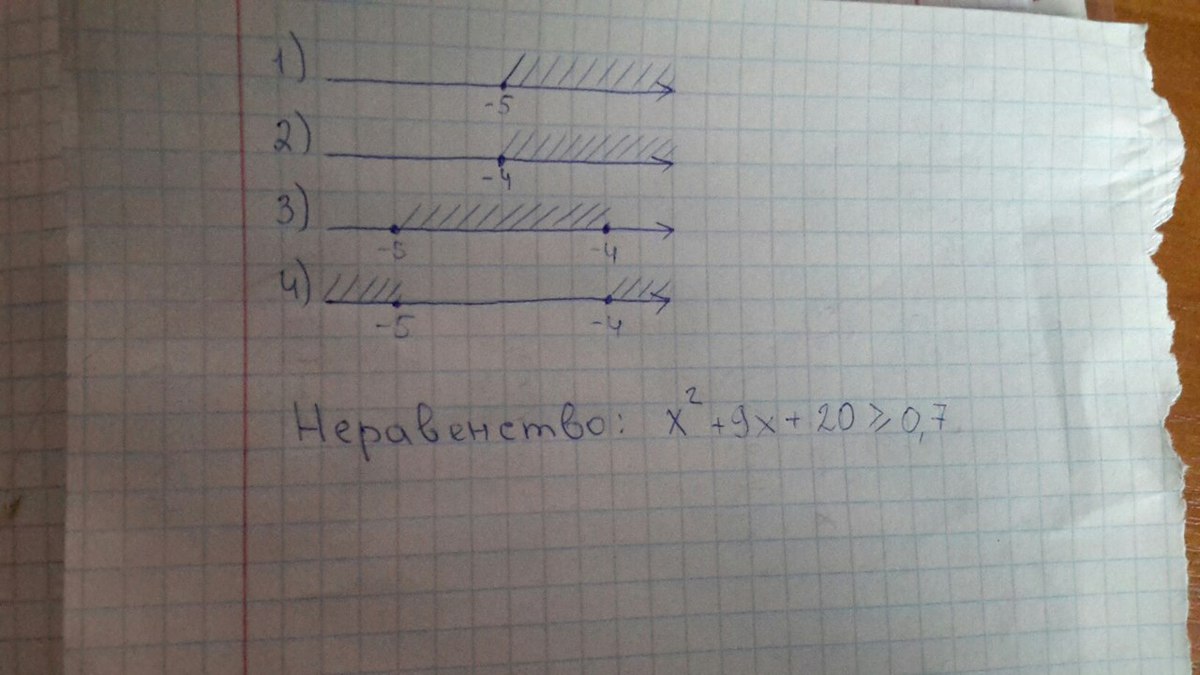 1)
-5
2)
-4
3)
-5 -4
4)
-5 -4
Неравенство: x² + 9x + 20 ⩾ 0,7